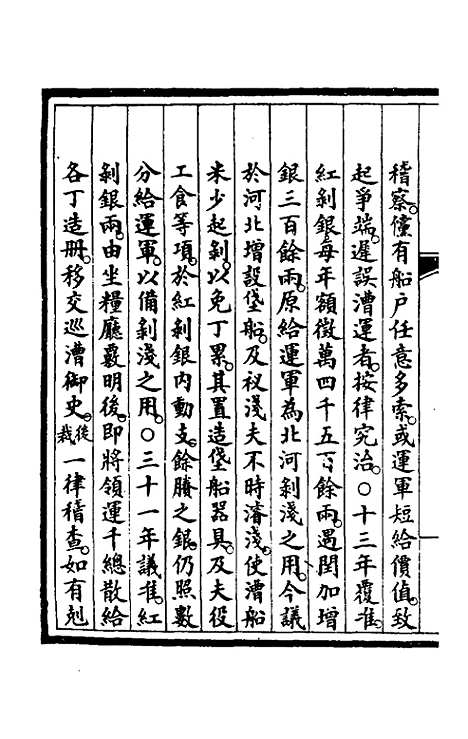 稽察。僅有船戶任意多索。或運軍短給價值。致
起爭端。遲誤漕運者。按律究治。○十三年覆准。
紅剝銀。每年額徵萬四千五百餘兩。遇閏加增
銀三百餘兩。原給運軍為北河剝淺之用。今議
於河北增設垡船。及衩淺夫不時濬淺。使漕船
米少起剝。以免丁累。其置造垡船器具。及夫役
工食等項。於紅剝銀內動支。餘賸之銀。仍照數
分給運軍。以備剝淺之用。○三十一年議准。紅
剝銀兩。由坐糧廳覈明後。即將領運千總散給
各丁造冊。移交巡漕御史。後裁一律稽查。如有剋